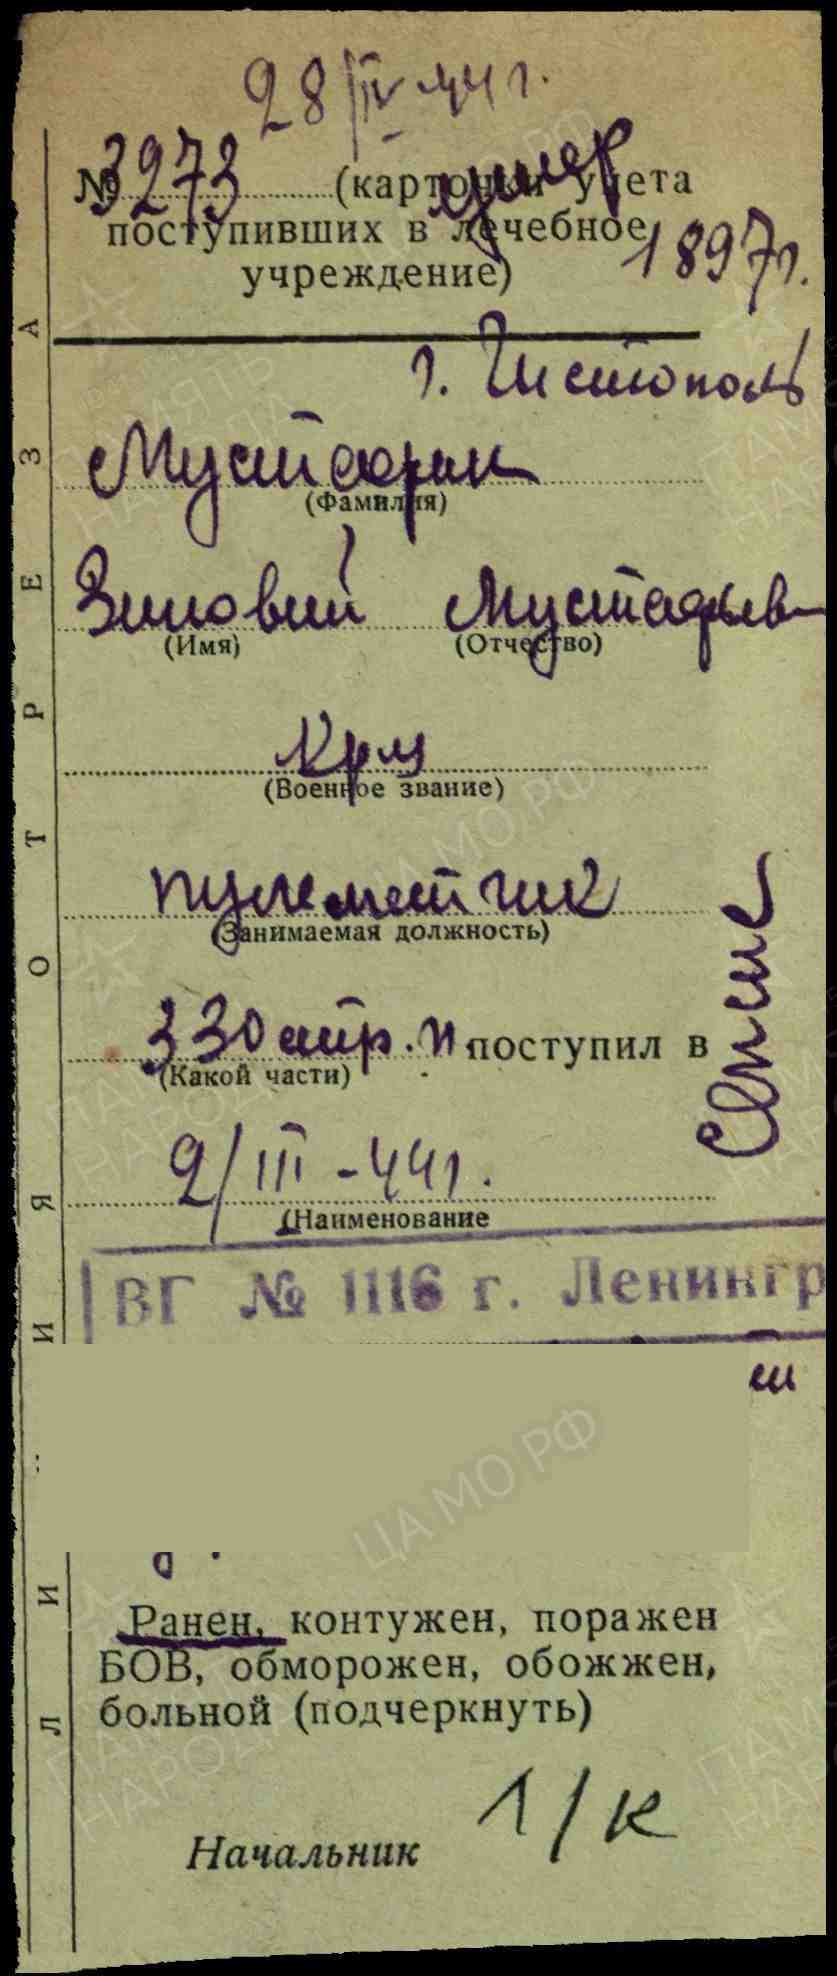 28/IV-44 г.
№ 3273 (карточки учета
умер
поступивших в лечебное
1897 г.
учреждение)
г. Чистополь
Мустафин
(Фамилия)
Зиновий Мустафьев
(Имя) (Отчество)
Крц
(Военное звание)
пулеметчик
(Занимаемая должность)
330 стр. п. поступил в
(Какой части)
Сепсис
2/III-44 г.
(Наименование
ВГ № 1116 г. Ленингр
Ранен, контужен, поражен
БОВ, обморожен, обожжен,
больной (подчеркнуть)
1/к
Начальник
ЛИНИЯ ОТРЕЗА
ЦАМО РФ
ПАМЯТЬ НАРОДА